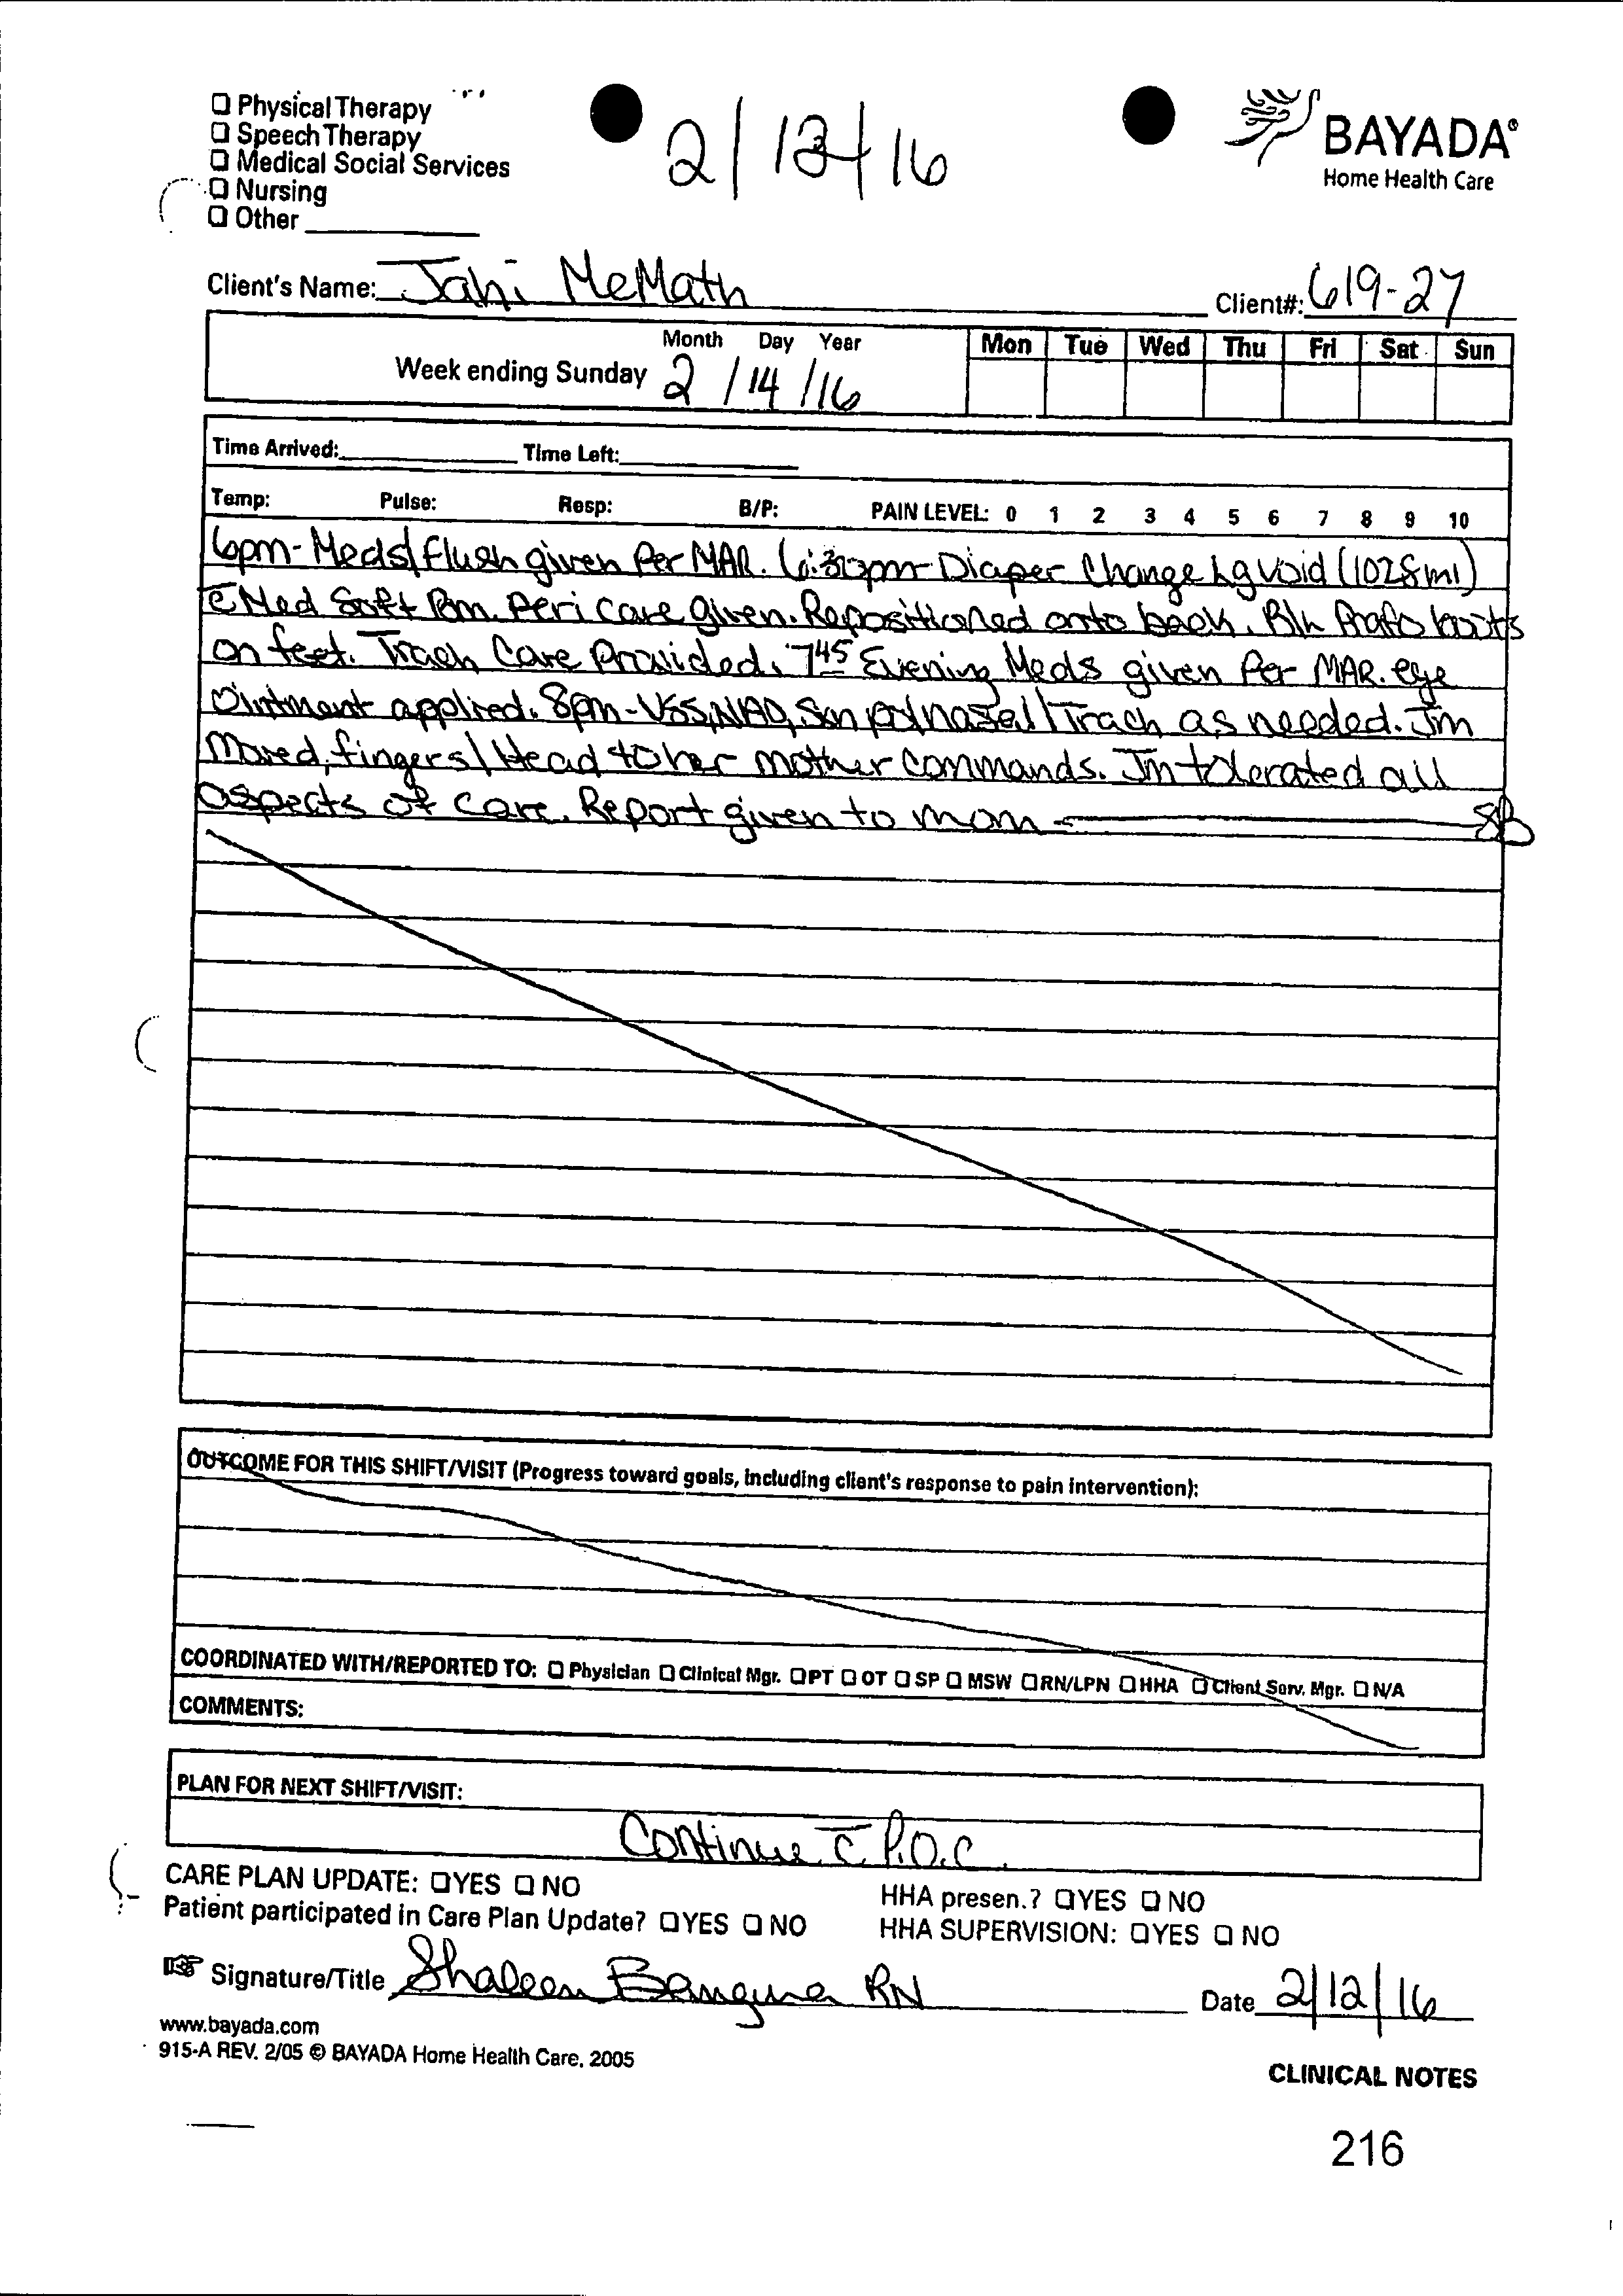 ☐ Physical Therapy
☐ Speech Therapy
☐ Medical Social Services
☐ Nursing
☐ Other
2/12/16
BAYADA®
Home Health Care
Client's Name: Jahi McMath
Client#: 619-27
Month Day Year Mon Tue Wed Thu Fri Sat Sun
Week ending Sunday 2/14/16
Time Arrived: Time Left:
Temp: Pulse: Resp: B/P: PAIN LEVEL: 0 1 2 3 4 5 6 7 8 9 10
6pm-Meds/Flush given Per MAR. 6:30pm-Diaper Change Lg void (1028ml)
c̄ Med Soft Bm. Peri care given. Repositioned onto back. Prafo boots
on feet. Trach Care Provided. 7 45 Evening Meds given Per MAR. eye
Ointment applied. 8pm-VSS, NAD, nasal/Trach as needed. Jm
Moved, fingers/Head to her mother commands. Jm tolerated all
aspects of care. Report given to mom - SB
OUTCOME FOR THIS SHIFT/VISIT (Progress toward goals, including client's response to pain intervention):
COORDINATED WITH/REPORTED TO: ☐ Physician ☐ Clinical Mgr. ☐ PT ☐ OT ☐ SP ☐ MSW ☐ RN/LPN ☐ HHA ☐ Client Serv. Mgr. ☐ N/A
COMMENTS:
PLAN FOR NEXT SHIFT/VISIT:
Continue c̄ P.O.C.
CARE PLAN UPDATE: ☐ YES ☐ NO
HHA presen.? ☐ YES ☐ NO
Patient participated in Care Plan Update? ☐ YES ☐ NO
HHA SUPERVISION: ☐ YES ☐ NO
☞ Signature/Title Shaleen Bangura RN
Date 2/12/16
www.bayada.com
915-A REV. 2/05 © BAYADA Home Health Care, 2005
CLINICAL NOTES
216